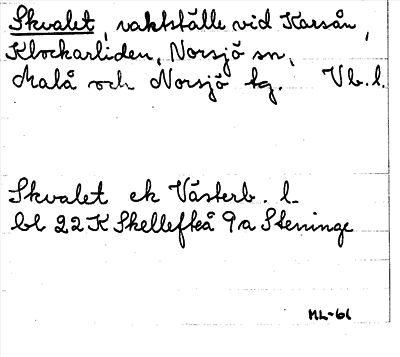 Skvalet, vaktställe vid Karsån,
Klockarliden, Norsjö sn,
Malå och Norsjö tg. Vb. l.
Skvalet ek Västerb. l.
bl 22K Skellefteå 9a Steninge
ML-61